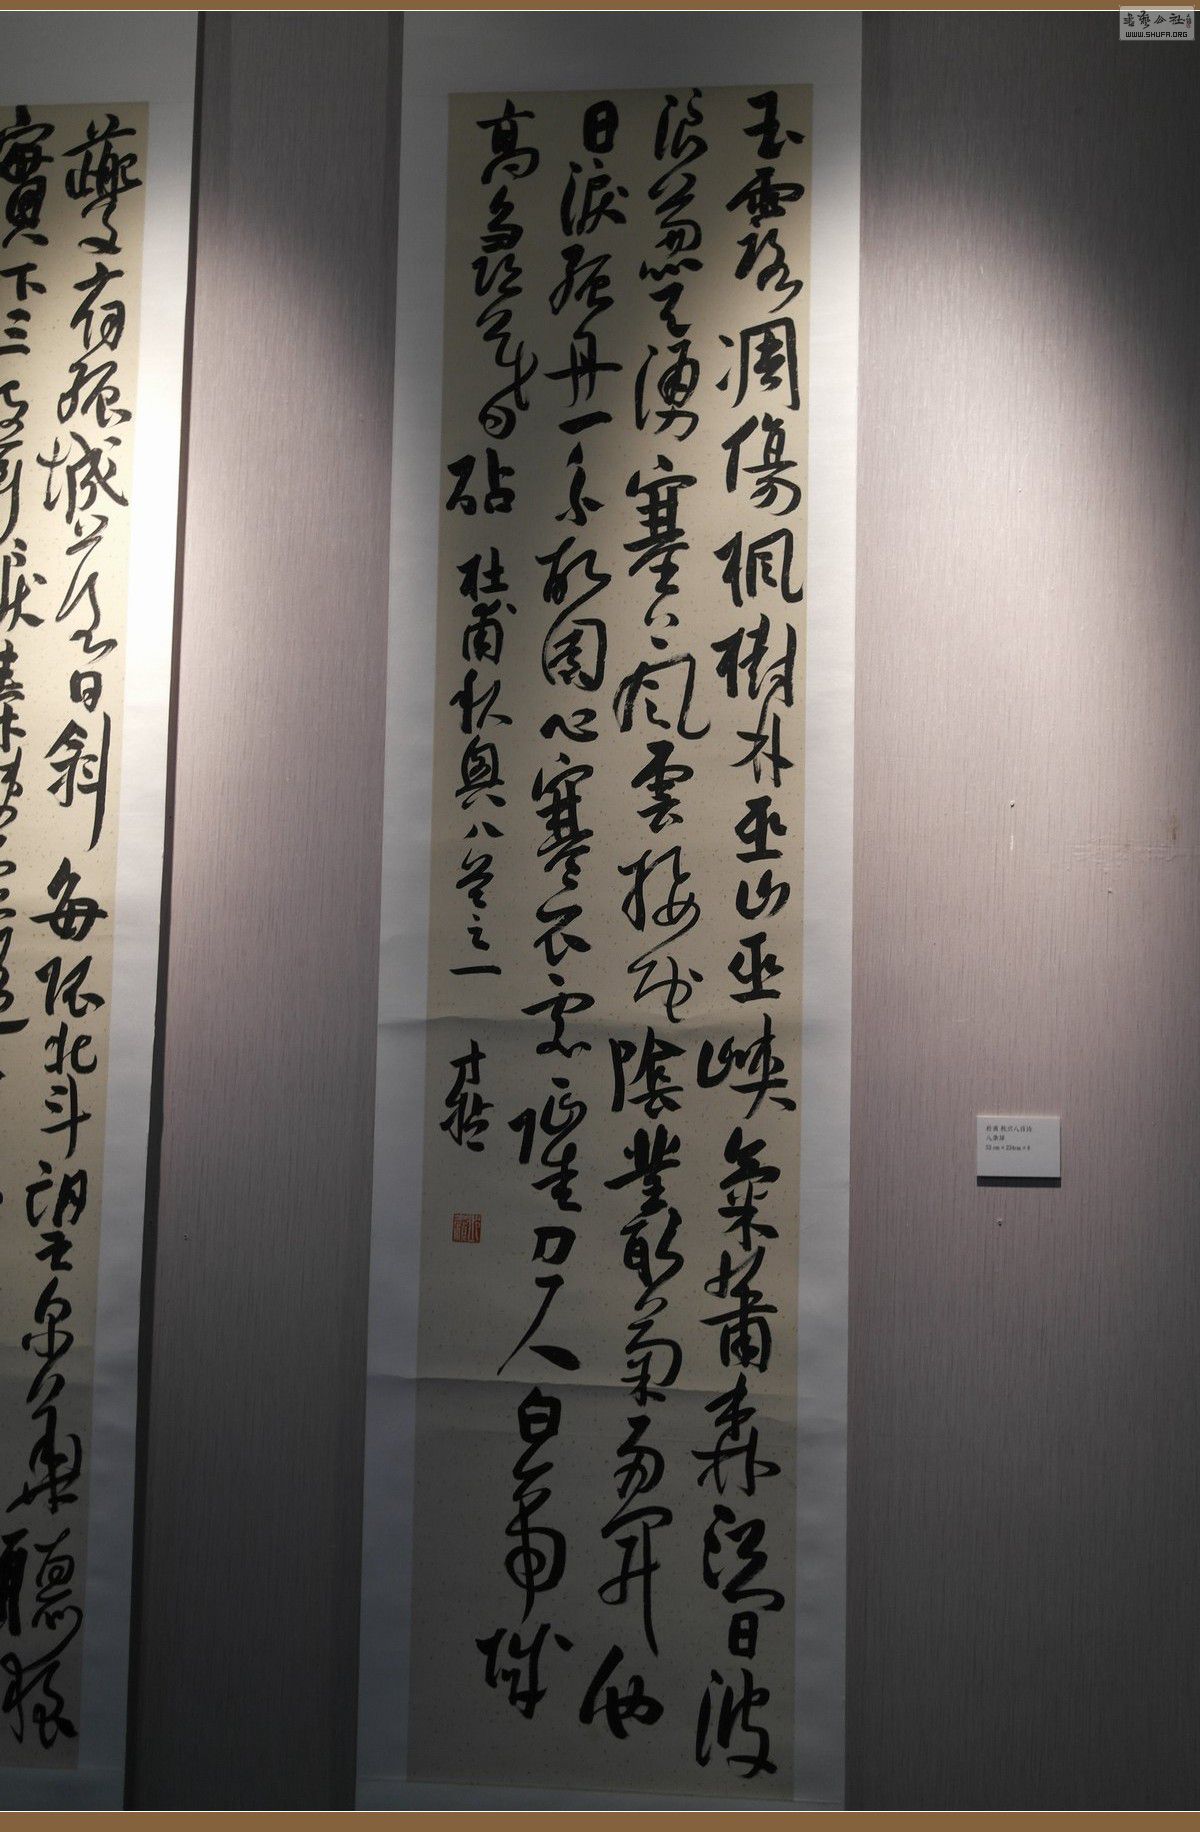 玉露凋傷楓樹林巫山巫峽氣蕭森江間波
浪兼天湧塞上風雲接地陰叢菊兩開他
日淚孤舟一系故園心寒衣處處催刀尺白帝城
高急暮砧 杜甫秋興八首之一
夔府孤城落日斜每依北斗望京華聽猿
實下三聲淚奉使虛隨
杜甫 秋兴八首诗
八条屏
書藝公社
WWW.SHUFA.ORG